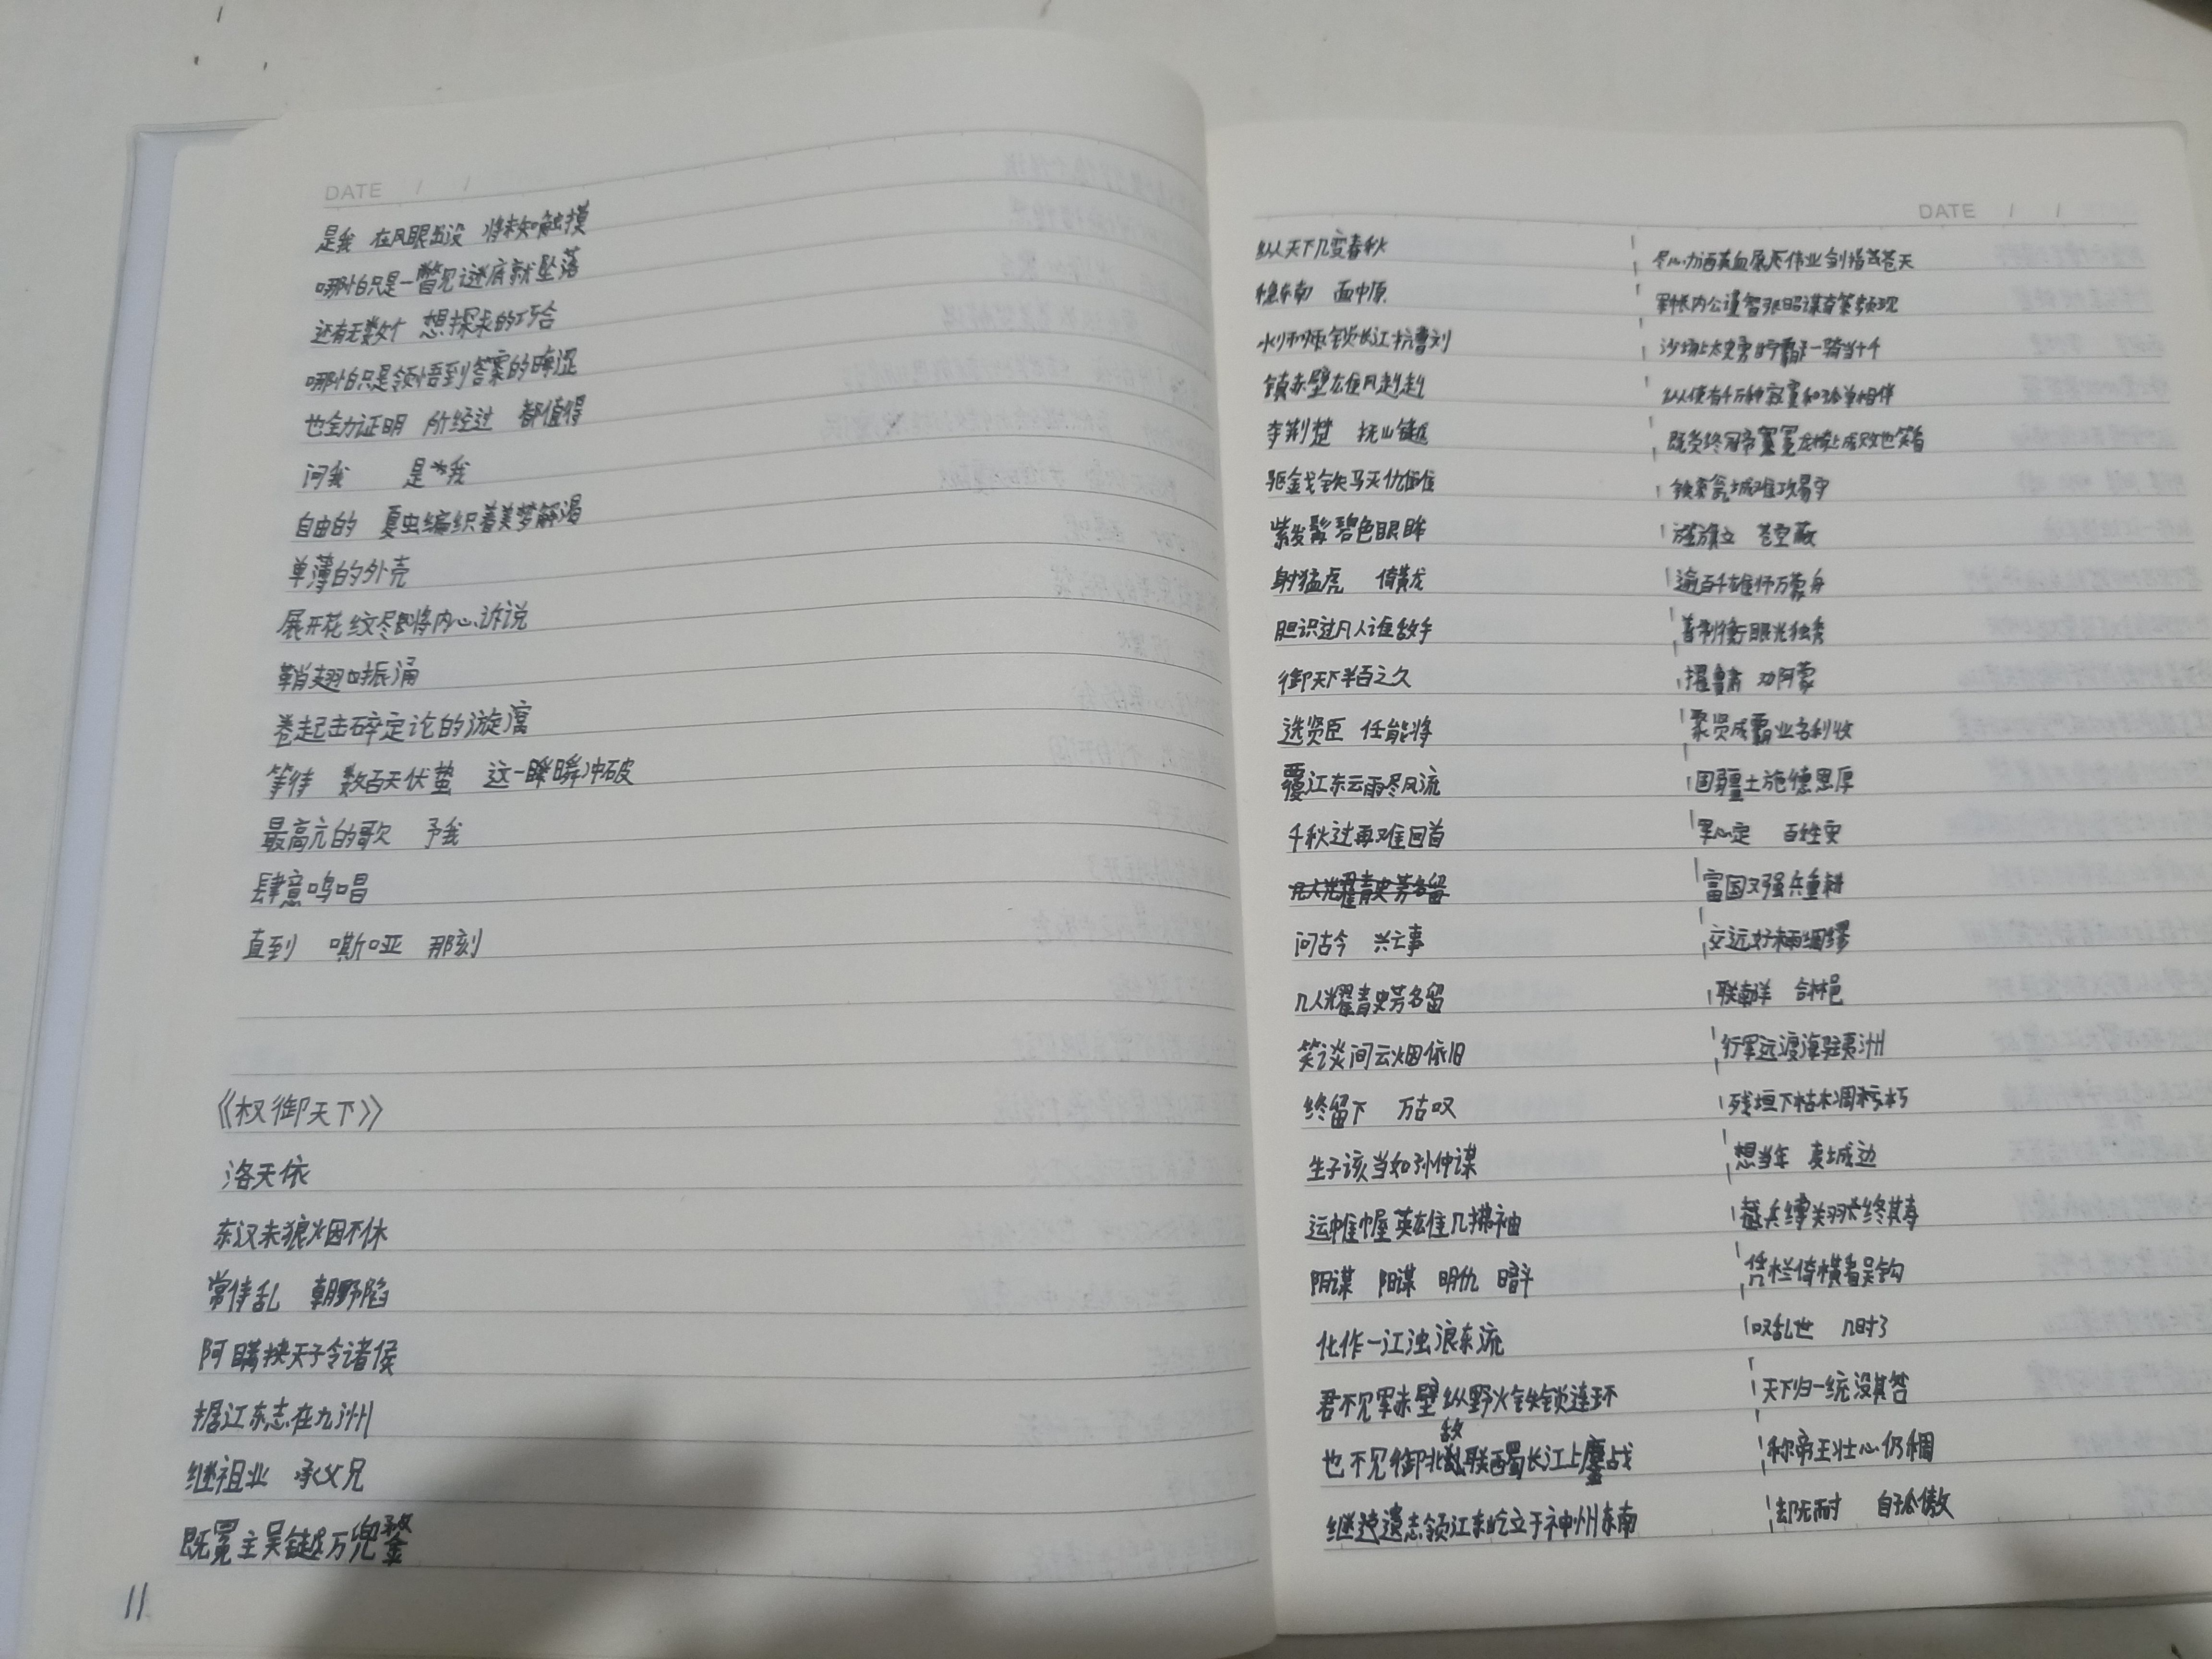 DATE / /
是我 在风眼出没 将未知触摸
哪怕只是一瞥见谜底就坠落
还有无数个 想探求的巧合
哪怕只是领悟到答案的晦涩
也全力证明 所经过 都值得
问我 是我
自由的 夏虫编织着美梦解渴
单薄的外壳
展开花纹尽即将内心诉说
鞘翅振涌
卷起击碎定论的漩涡
等待 数百天伏蛰 这一瞬瞬冲破
最高亢的歌 予我
肆意鸣唱
直到 嘶哑 那刻
《权御天下》
洛天依
东汉末狼烟不休
常侍乱 朝野陷
阿瞒挟天子令诸侯
据江东志在九州
继祖业 承父兄
既冕主吴越万兜鍪
11
DATE / /
纵天下几变春秋
稳东南 面中原
水师锁长江抗曹刘
镇赤壁左雄风赳赳
夺荆楚 抚山越
驱金戈铁马灭仇雠
紫发髯碧色眼眸
射猛虎 倚黄龙
胆识过凡人谁敌手
御天下半百之久
选贤臣 任能将
覆江东云雨尽风流
千秋过再难回首
问古今 兴亡事
几人耀青史芳名留
笑谈间云烟依旧
终留下 万古叹
生子该当如孙仲谋
运帷幄英雄几拂袖
阴谋 阳谋 明仇 暗斗
化作一江浊浪东流
君不见军赤壁纵野火铁锁连环
也不见御北敌联西蜀长江上鏖战
继遗志领江东屹立于神州东南
尽心力洒黄血展伟业剑指苍天
军帐内公瑾智张昭谋奇策频现
沙场上太史勇甘宁霸一骑当千
纵使有千万种寂寞和孤单相伴
既受终冠帝冕龙椅上成败也笑看
铁瓮城难攻易守
旌旗立 苍空蔽
逾百千雄师万蒙舟
善制衡眼光独秀
擢鲁肃 劝阿蒙
聚贤成霸业名利收
固疆土施德恩厚
军心定 百姓安
富国又强兵重耕
交远好未雨绸缪
联南洋 合林邑
行军远渡海驻夷洲
残垣下枯木凋朽
想当年 麦城边
关羽终其寿
凭栏倚横看吴钩
叹乱世 几时了
天下归一统没其咎
称帝王壮心仍稠
却无耐 自孤傲